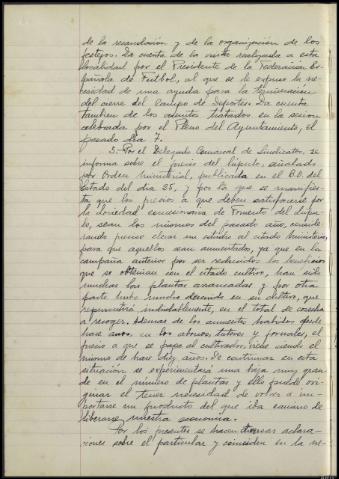 de la recaudación y de la organización de los
festejos. Da cuenta de la visita realizada a esta
localidad por el Presidente de la Federación Es-
pañola de Fútbol, al que se le expuso la ne-
cesidad de una ayuda para la terminación
del cierre del Campo de Deportes. Da cuenta
tambien de los asuntos tratados en la sesion
celebrada por el Pleno del Ayuntamiento, el
pasado dia 7.
5. Por el Delegado Comarcal de Sindicatos, se
informa sobre el precio del lúpulo, señalado
por Orden Ministerial, publicada en el B.O. del
Estado del dia 25, y por la que se manifies-
ta que los precios a que deben satisfacerse por
la Sociedad concesionaria de Fomento del Lúpu-
lo, sean los mismos del pasado año,
rando preciso elevar un escrito al citado Ministerio,
para que aquellos sean aumentados, ya que en la
campaña anterior por ser reducidos los beneficios
que se obtenian con el citado cultivo, han sido
muchas las plantas arrancadas y por otra
parte hubo mucho descuido en su cultivo, que
repercutirá indudablemente, en el total de cosecha
a recoger. Ademas de los aumentos habidos desde
hace años, en los abonos, y jornales, el
precio a que se paga al cultivador, sigue siendo el
mismo de hace diez años. De continuar en esta
situación se experimentará una baja muy gran-
de en el número de plantas y ello puede ori-
ginar el tener necesidad de volver a im-
portarse un producto del que iba camino de
liberarse nuestra economia.
Por los presentes se hacen diversas aclara-
ciones sobre el particular y coinciden en la ne-